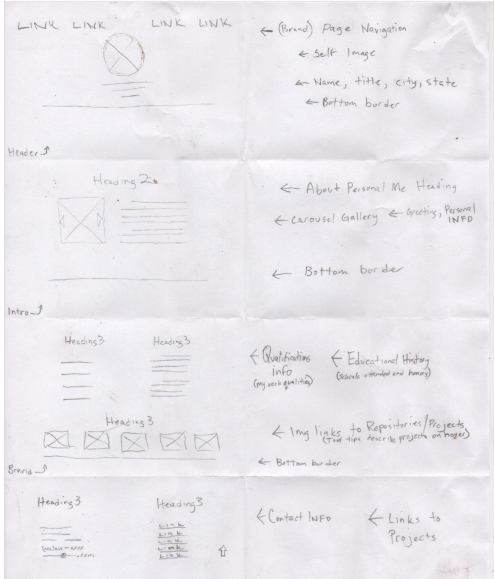 LINK LINK LINK LINK
← (Brand) Page Navigation
← Self Image
← Name, title, city, state
← Bottom border
Header
Heading 2
← About Personal Me Heading
← Carousel Gallery ← Greeting, Personal INFO
← Bottom border
Intro
Heading 3 Heading 3
← Qualifications Info
(my work qualities)
← Educational History
(schools attended and honors)
Heading 3
← Img links to Repositories/Projects
(Tool tips describe projects on hover)
← Bottom border
Brand
Heading 3 Heading 3
← Contact INFO
← Links to Projects
Link
Link
Link
Link
Link
.com